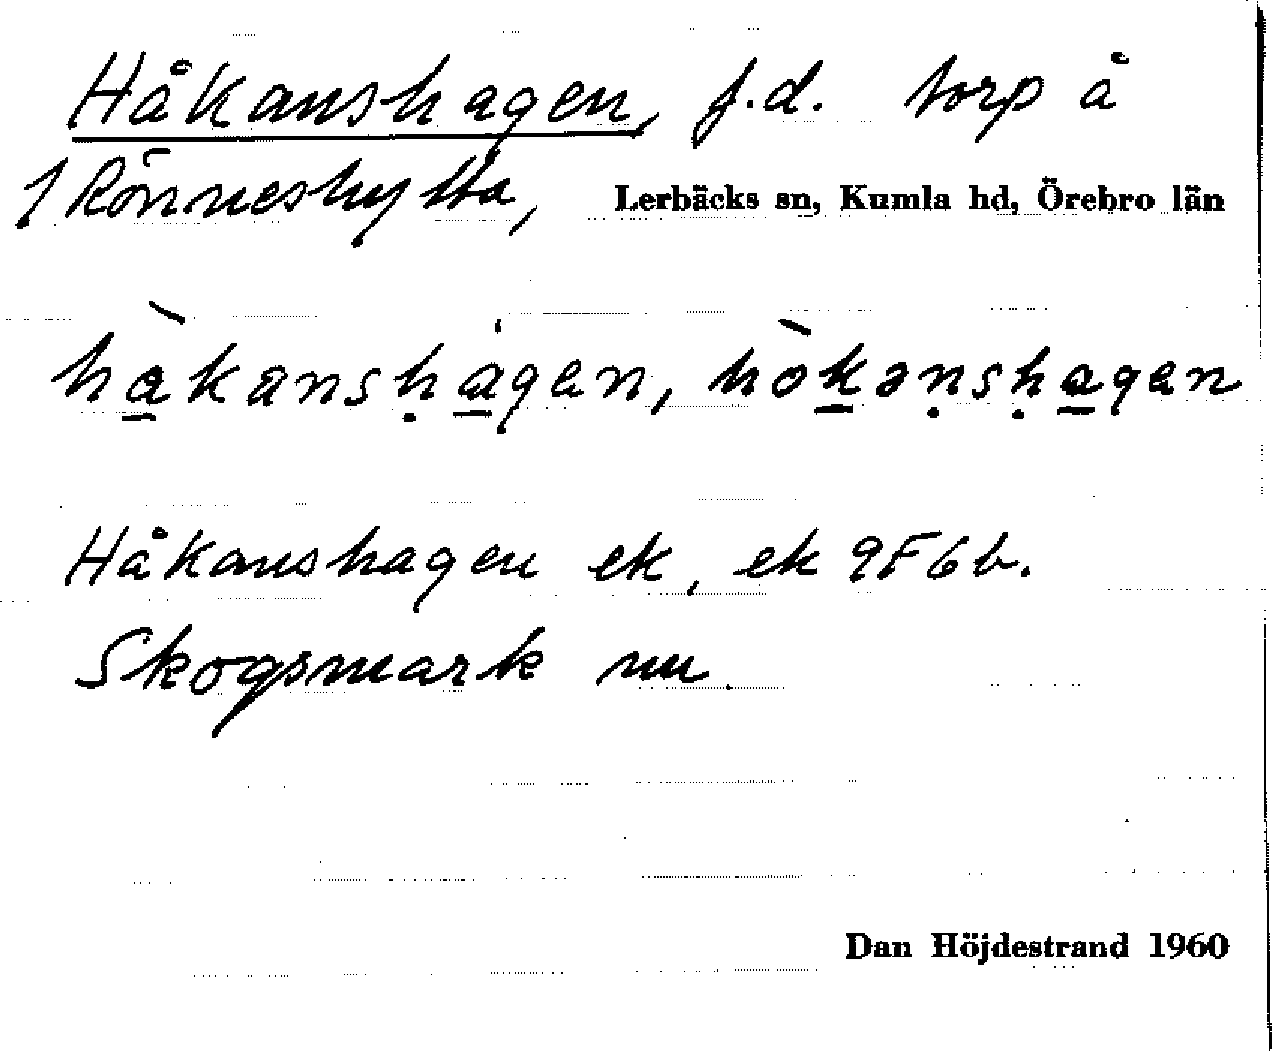 Håkanshagen, f.d. torp å
1 Rönneshytta, Lerbäcks sn, Kumla hd, Örebro län
hàkanshagen, hòkanshagen
Håkanshagen ek, ek 9F6b.
Skogsmark nu.
Dan Höjdestrand 1960